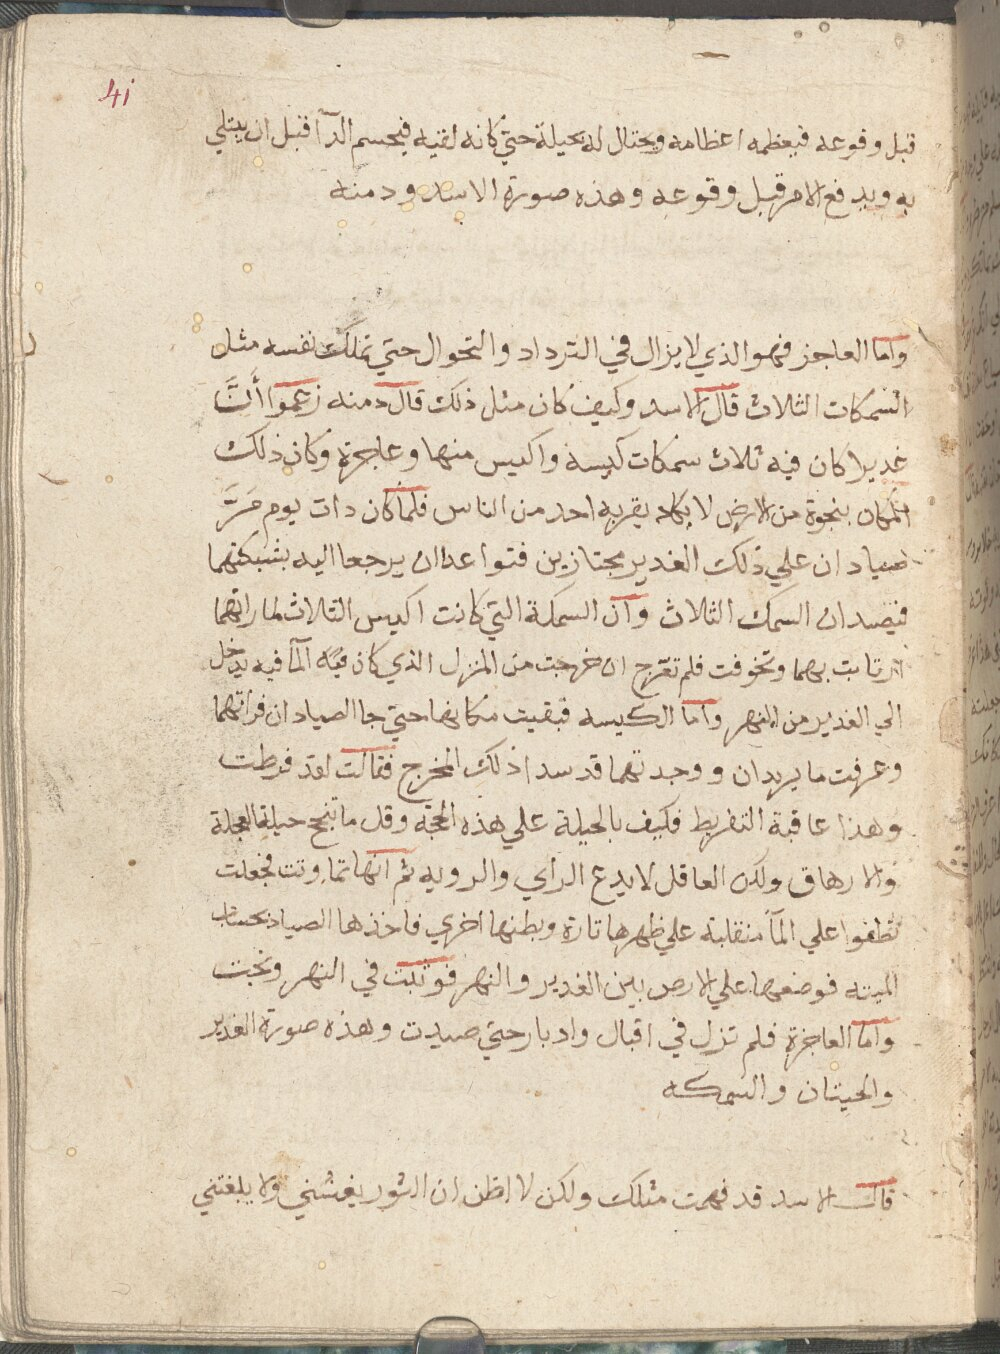 41
قبل وقوعه فيعظمه اعظامه ويحتال له بحيلة حتي كانه لقيه فيحسم الدآ قبل ان يبتلي
به ويدفع الامر قبل وقوعه وهذه صورة الاسد ودمنه
واما العاجز فهو الذي لا يزال في الترداد والتحوال حتي تملك نفسه مثل
السمكات الثلاث قال الاسد وكيف كان مثل ذلك قال دمنه زعموا أنَّ
غديرا كان فيه ثلاث سمكات كيسة واكيس منها وعاجزة وكان ذلك
المكان بنجوة من الارض لا يكاد يقربه احد من الناس فلما كان دات يوم مَرَّ
صيادان علي ذلك الغدير مجتازين فتواعدا ان يرجعا اليه بشبكتهما
فيصيدان السمك الثلاث وان السمكة التي كانت اكيس الثلاث لما راتهما
ارتابت بهما وتخوفت فلم تعرّج ان خرجت من المنزل الذي كان فيه المآ فيه يدخل
الي الغدير من النهر واما الكيسه فبقيت مكانها حتي جا الصيادان فراتهما
وعرفت ما يريدان ووجدتهما قد سدا ذلك المخرج فقالت لقد فرطت
وهذا عاقبة التفريط فكيف بالحيلة علي هذه الحجة وقل ما تنجح حيلة العجلة
والارهاق ولكن العاقل لا يدع الراي والرويه ثم انها تماوتت فجعلت
تطفوا علي المآ منقلبة علي ظهرها تارة وبطنها اخري فاخذها الصياد بحساب
الميته فوضعها علي الارض بين الغدير والنهر فوثبت في النهر ونجت
واما العاجزة فلم تزل في اقبال وادبار حتي صيدت وهذه صورة الغدير
والحيتان والسمكه
قال الاسد قد فهمت مثلك ولكن لا اظن ان الثور يغشني ولا يلغتني